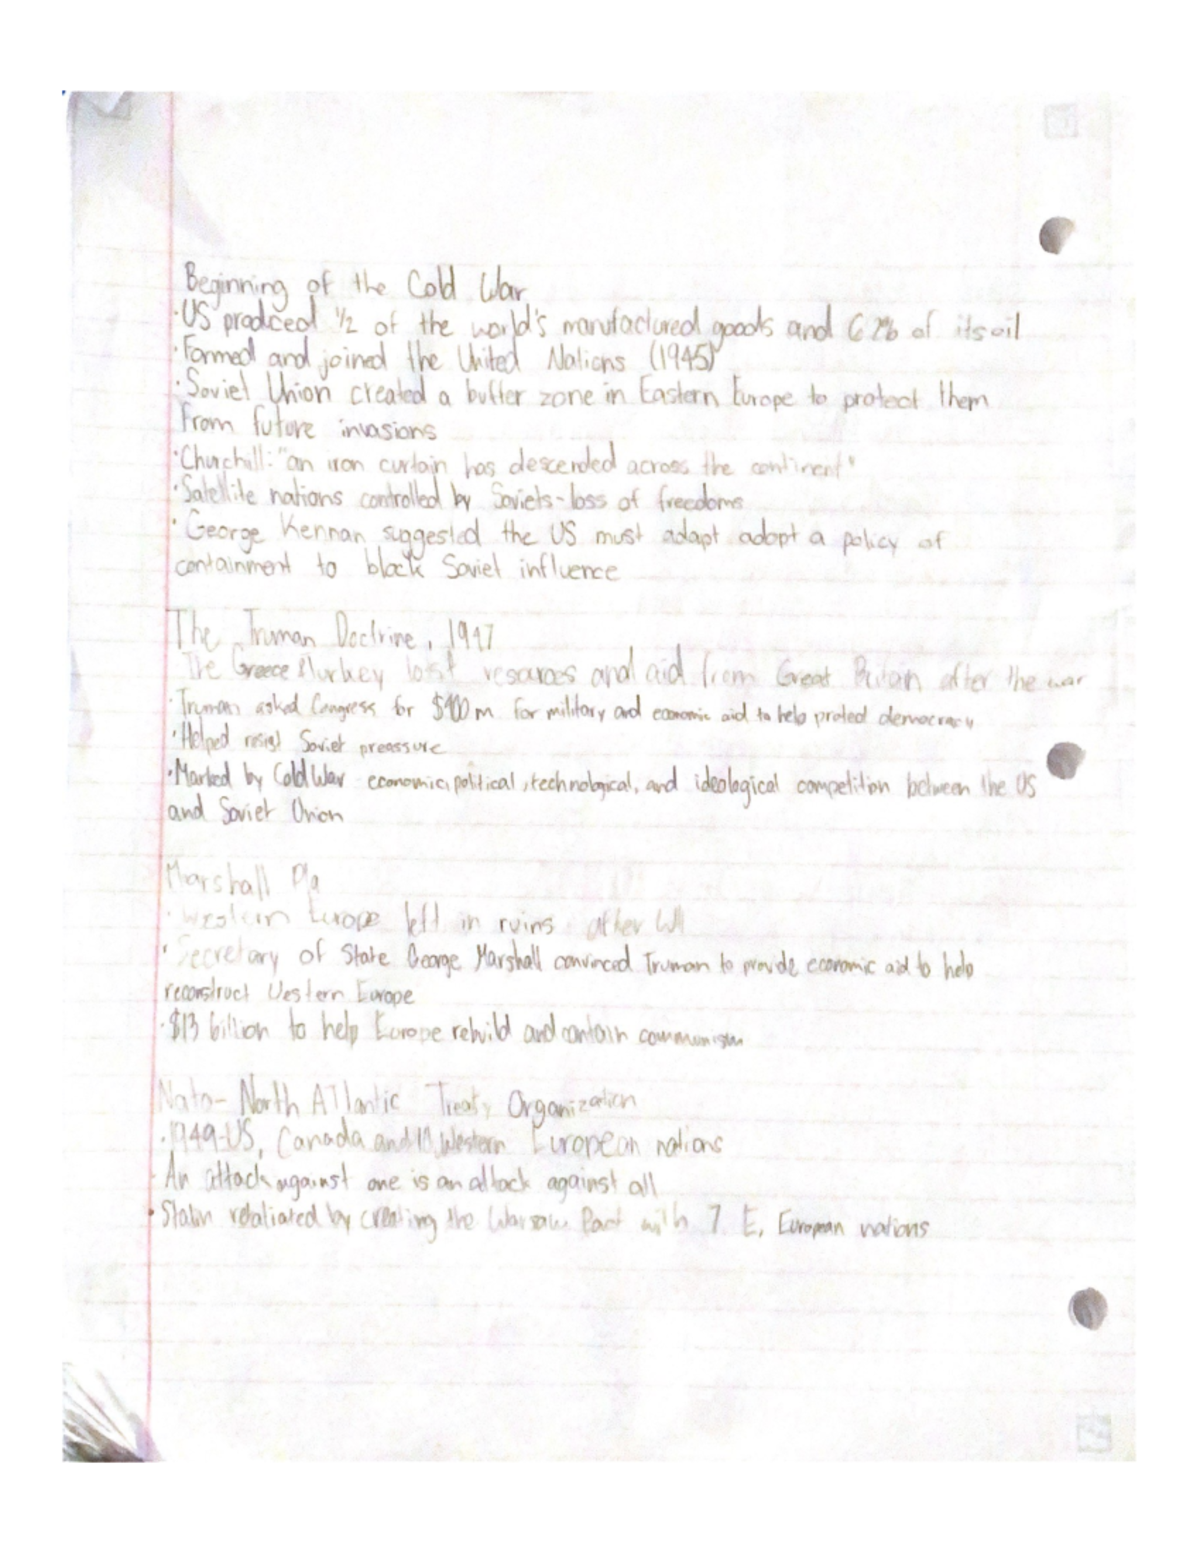 Beginning of the Cold War
·US produced 1/2 of the world's manufactured goods and 62% of its oil
·Formed and joined the United Nations (1945)
·Soviet Union created a buffer zone in Eastern Europe to protect them
from future invasions
·Churchill: "an iron curtain has descended across the continent"
·Satellite nations controlled by Soviets - loss of freedoms
·George Kennan suggested the US must adapt adopt a policy of
containment to block Soviet influence
The Truman Doctrine, 1947
The Greece & Turkey lost resources and aid from Great Britain after the war
·Truman asked Congress for $400 m for military and economic aid to help protect democracy
·Helped resist Soviet preassure
·Marked by Cold War economic, political, technological, and ideological competition between the US
and Soviet Union
Marshall Pla
·Western Europe left in ruins after WII
·Secretary of State George Marshall convinced Truman to provide economic aid to help
reconstruct Western Europe
·$13 billion to help Europe rebuild and contain communism
Nato- North Atlantic Treaty Organization
·1949-US, Canada and Western European nations
·An attack against one is an attack against all
·Stalin retaliated by creating the Warsaw Pact with 7 E. European nations